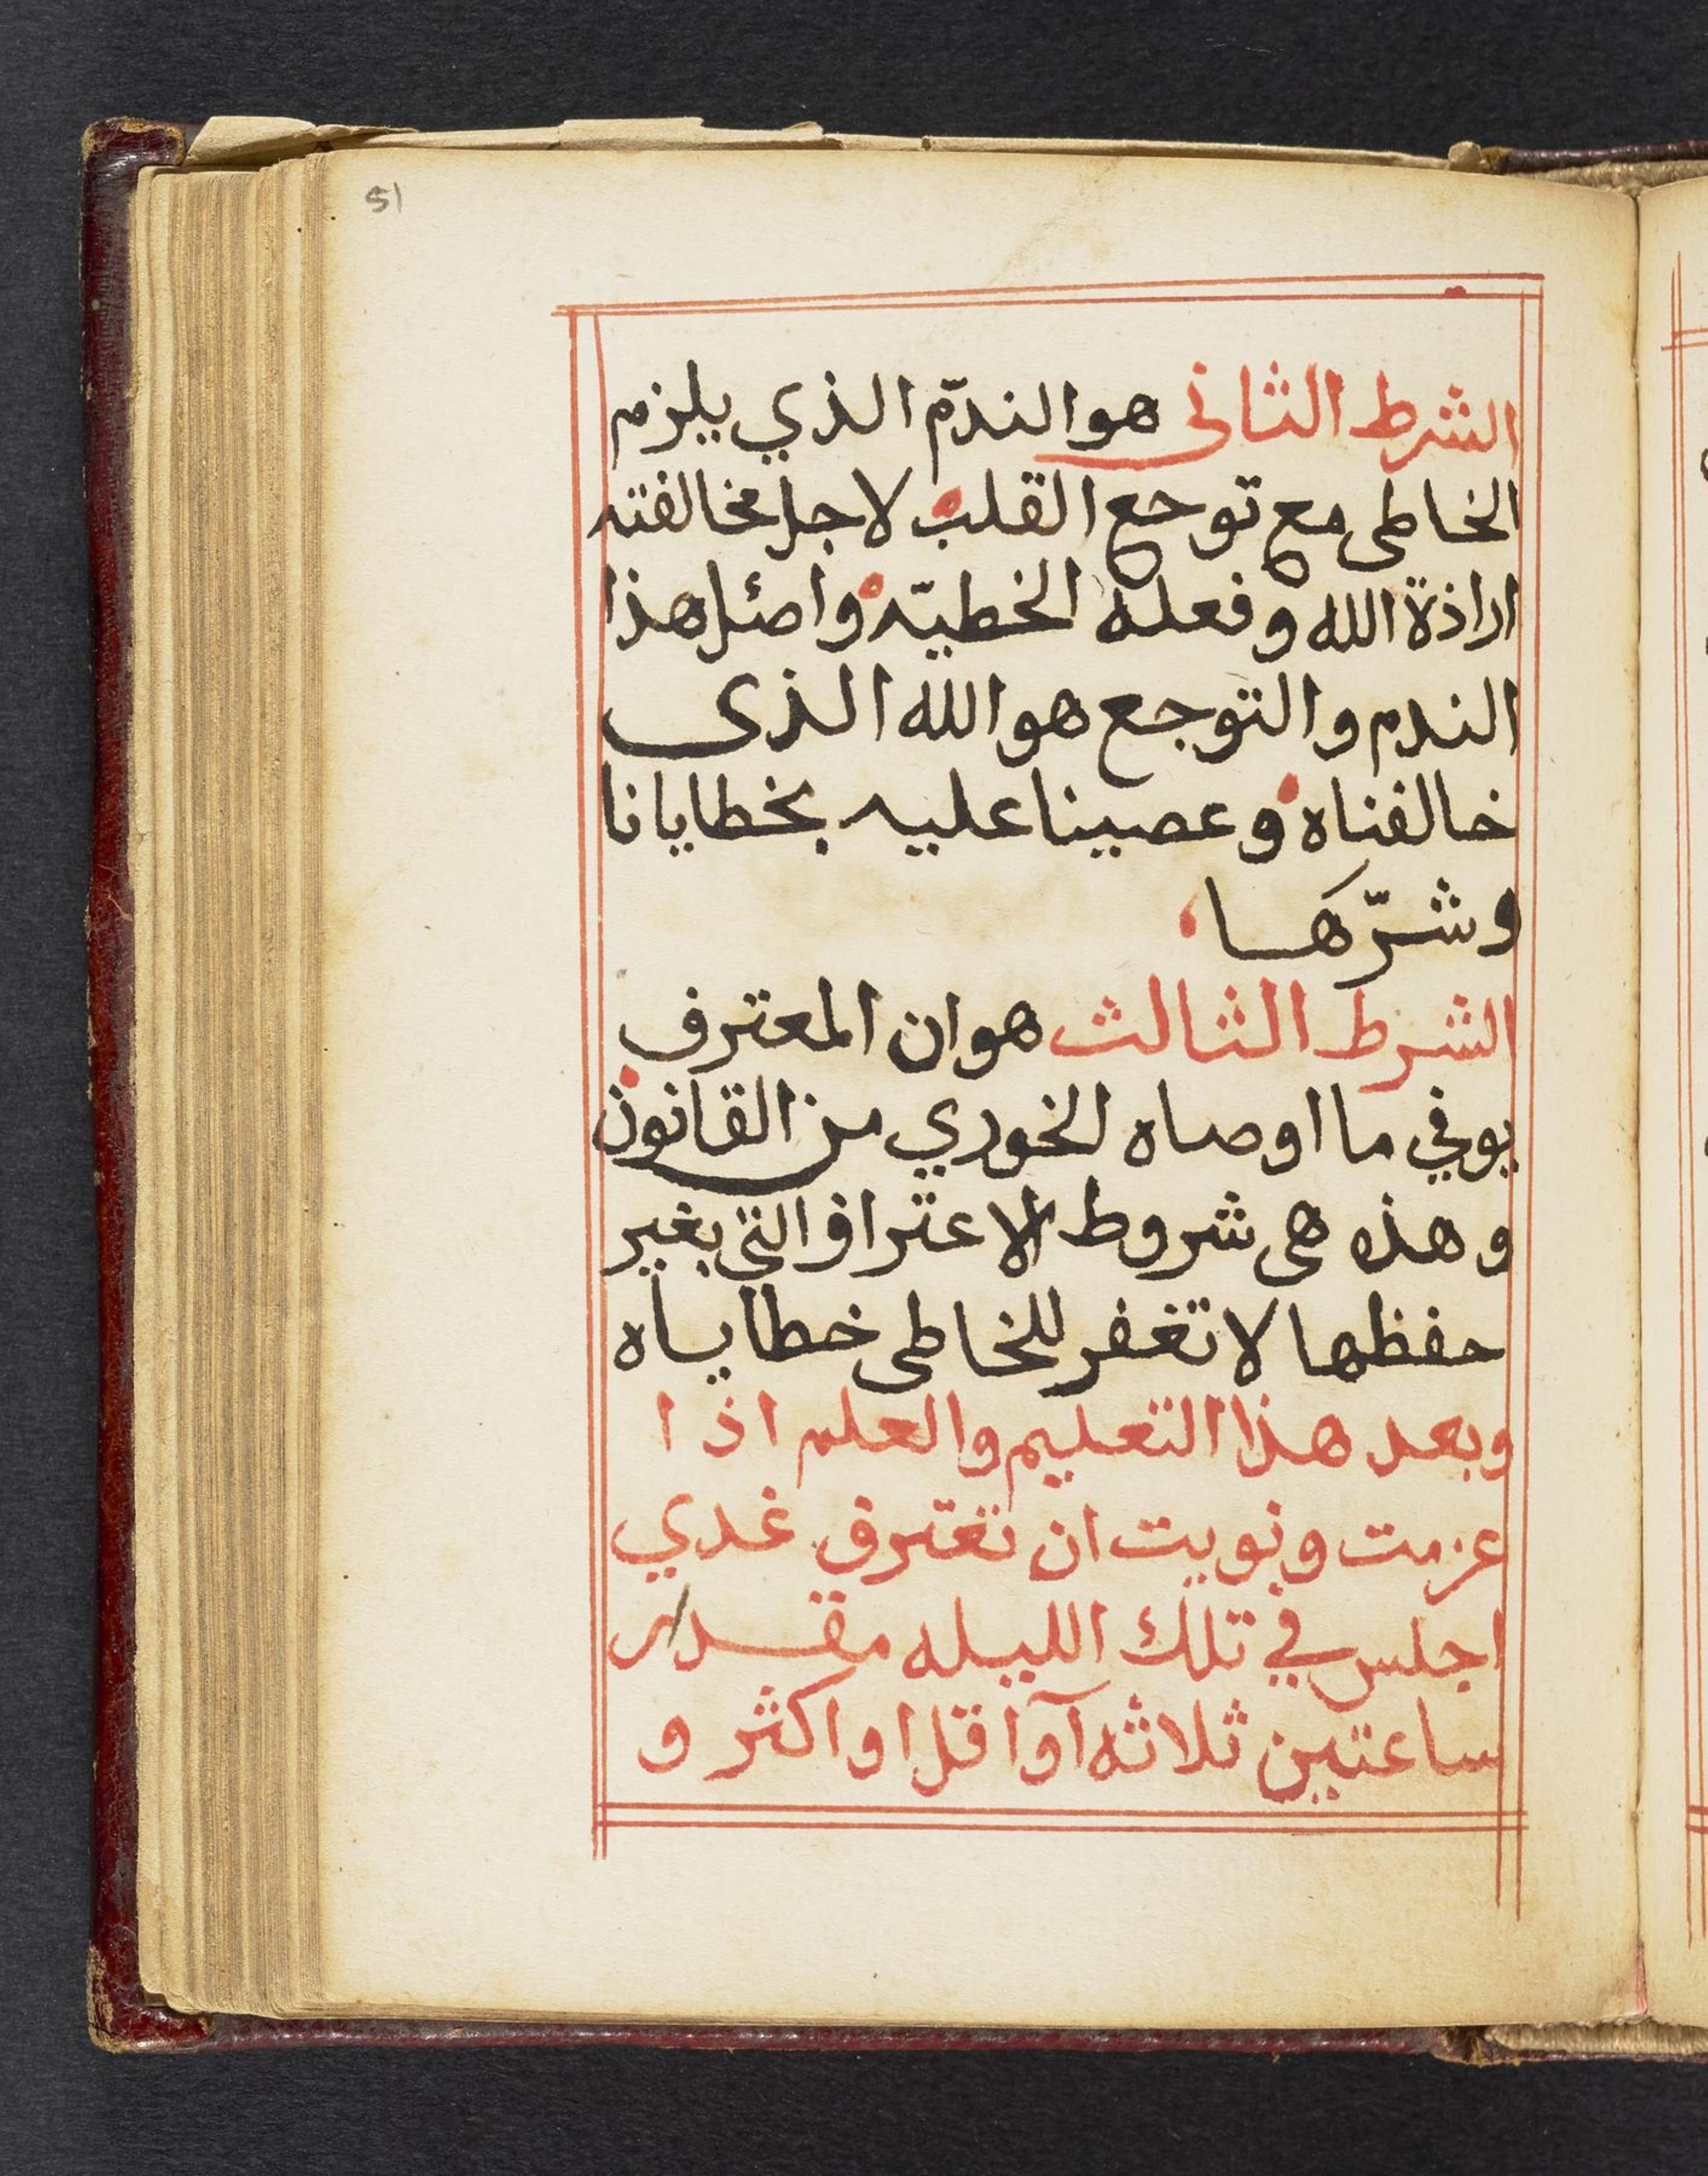 51
الشرط الثانى هو الندّم الذي يلزم
الخاطى مع توجع القلب لاجل مخالفته
اراذة الله وفعله الخطيّه واصئل هذا
الندم والتوجع هو الله الذى
خالفناه وعصينا عليه بخطايانا
وشرّها
الشرط الثالث هو ان المعترف
يوفي ما اوصاه الخوري من القانون
وهذه هى شروط الاعتراف التي بغير
حفظها لا تغفر للخاطى خطاياه
وبعد هذا التعليم والعلم اذا
عزمت ونويت ان تعترف غدي
اجلس في تلك الليله مقدار
ساعتين ثلاثه آو اقل او اكثر و